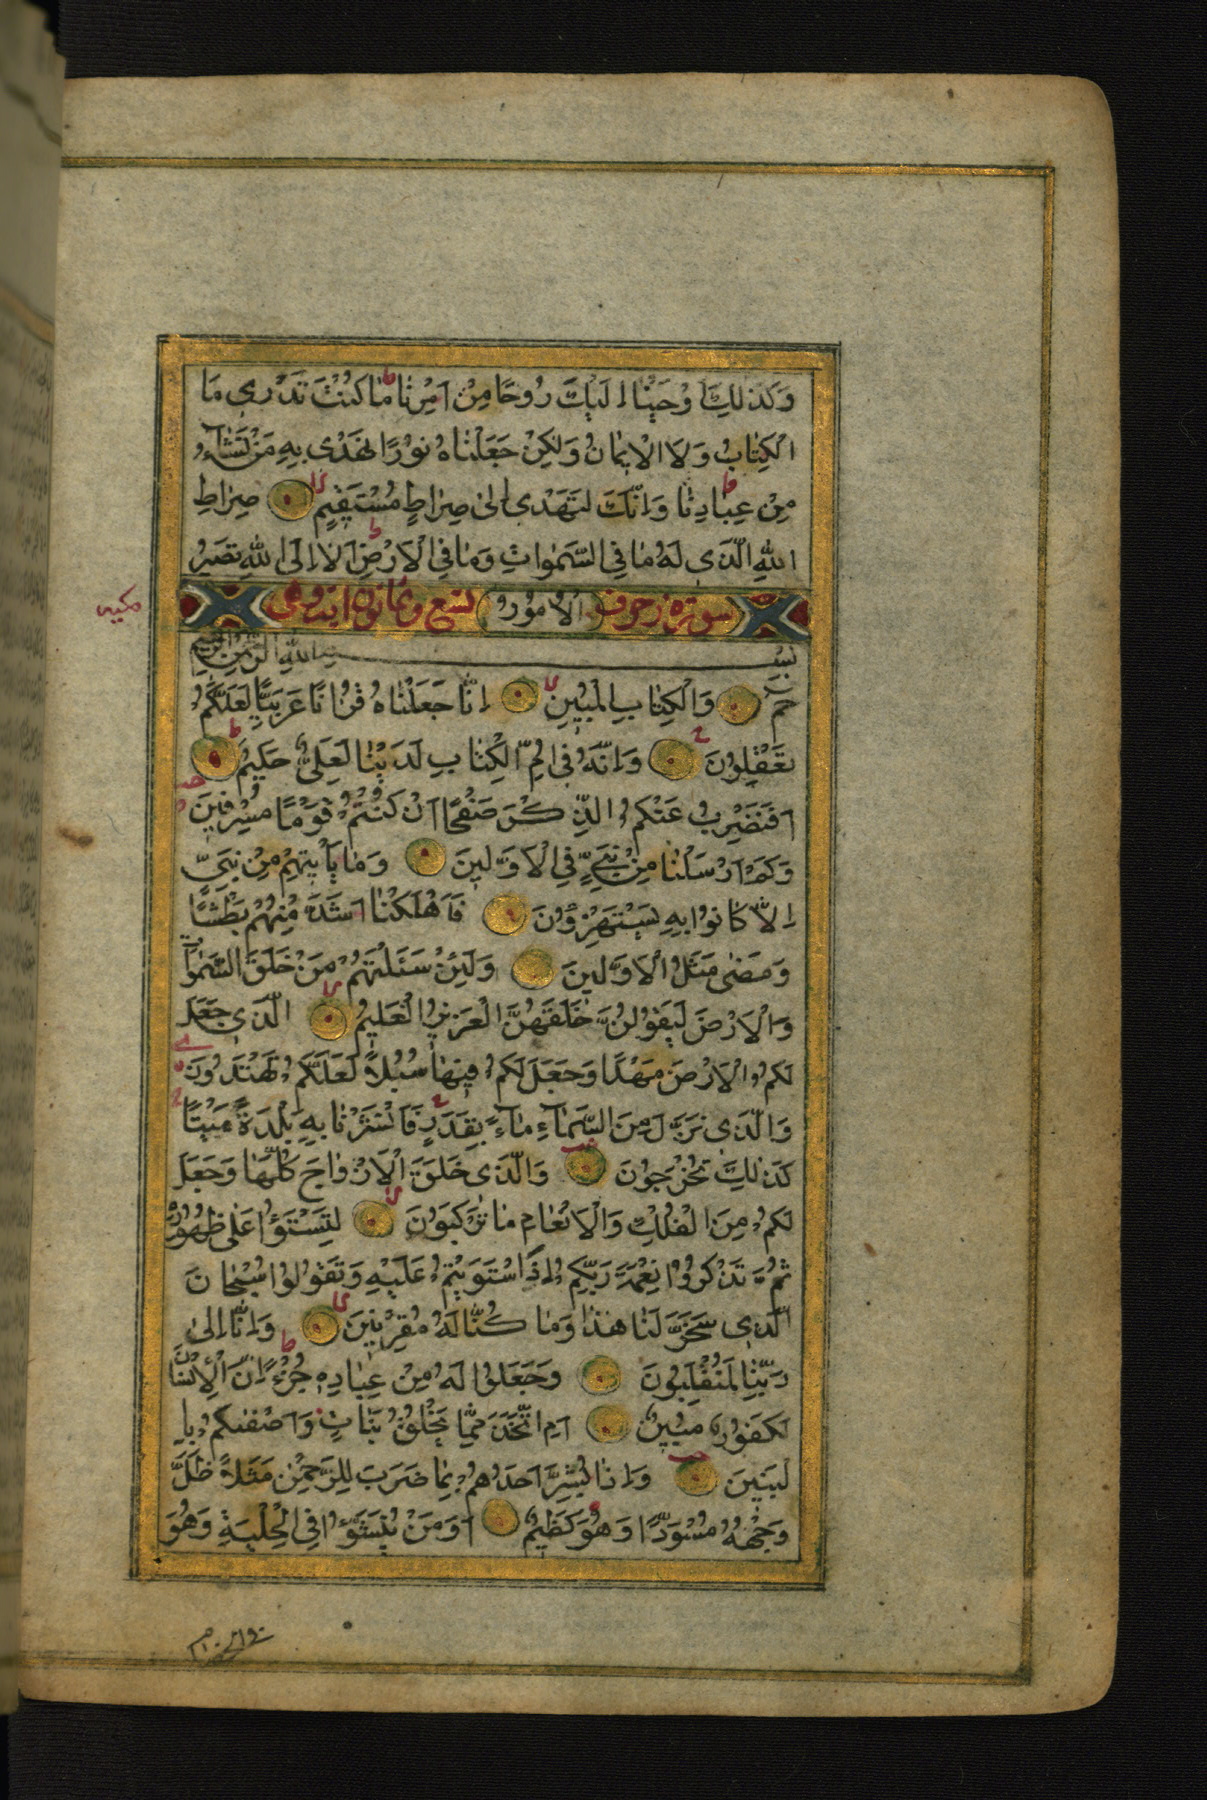 وَكَذٰلِكَ اَوْحَيْنَا اِلَيْكَ رُوحًا مِنْ اَمْرِنَا مَا كُنْتَ تَدْرِي مَا
الْكِتَابُ وَلَا الْاِيمَانُ وَلٰكِنْ جَعَلْنَاهُ نُورًا نَهْدِي بِهِ مَنْ نَشَاءُ
مِنْ عِبَادِنَا وَاِنَّكَ لَتَهْدِي اِلٰى صِرَاطٍ مُسْتَقِيمٍ صِرَاطِ
اللهِ الَّذِي لَهُ مَا فِي السَّمٰوَاتِ وَمَا فِي الْاَرْضِ اَلَا اِلَى اللهِ تَصِيرُ
سورة زخرف الْاُمُورُ تسع وثمانون اية وهي
مكيه
بِسْمِ اللهِ الرَّحْمٰنِ الرَّحِيمِ
حٰمٓ وَالْكِتَابِ الْمُبِينِ اِنَّا جَعَلْنَاهُ قُرْاٰنًا عَرَبِيًّا لَعَلَّكُمْ
تَعْقِلُونَ وَاِنَّهُ فِي اُمِّ الْكِتَابِ لَدَيْنَا لَعَلِيٌّ حَكِيمٌ
اَفَنَضْرِبُ عَنْكُمُ الذِّكْرَ صَفْحًا اَنْ كُنْتُمْ قَوْمًا مُسْرِفِينَ
وَكَمْ اَرْسَلْنَا مِنْ نَبِيٍّ فِي الْاَوَّلِينَ وَمَا يَأْتِيهِمْ مِنْ نَبِيٍّ
اِلَّا كَانُوا بِهِ يَسْتَهْزِؤُنَ فَاَهْلَكْنَا اَشَدَّ مِنْهُمْ بَطْشًا
وَمَضٰى مَثَلُ الْاَوَّلِينَ وَلَئِنْ سَئَلْتَهُمْ مَنْ خَلَقَ السَّمٰوَاتِ
وَالْاَرْضَ لَيَقُولُنَّ خَلَقَهُنَّ الْعَزِيزُ الْعَلِيمُ الَّذِي جَعَلَ
لَكُمُ الْاَرْضَ مَهْدًا وَجَعَلَ لَكُمْ فِيهَا سُبُلًا لَعَلَّكُمْ تَهْتَدُونَ
وَالَّذِي نَزَّلَ مِنَ السَّمَاءِ مَاءً بِقَدَرٍ فَاَنْشَرْنَا بِهِ بَلْدَةً مَيْتًا
كَذٰلِكَ تُخْرَجُونَ وَالَّذِي خَلَقَ الْاَزْوَاجَ كُلَّهَا وَجَعَلَ
لَكُمْ مِنَ الْفُلْكِ وَالْاَنْعَامِ مَا تَرْكَبُونَ لِتَسْتَوُا عَلٰى ظُهُورِهِ
ثُمَّ تَذْكُرُوا نِعْمَةَ رَبِّكُمْ اِذَا اسْتَوَيْتُمْ عَلَيْهِ وَتَقُولُوا سُبْحَانَ
الَّذِي سَخَّرَ لَنَا هٰذَا وَمَا كُنَّا لَهُ مُقْرِنِينَ وَاِنَّا اِلٰى
رَبِّنَا لَمُنْقَلِبُونَ وَجَعَلُوا لَهُ مِنْ عِبَادِهِ جُزْءًا اِنَّ الْاِنْسَانَ
لَكَفُورٌ مُبِينٌ اَمِ اتَّخَذَ مِمَّا يَخْلُقُ بَنَاتٍ وَاَصْفٰىكُمْ بِا
لْبَنِينَ وَاِذَا بُشِّرَ اَحَدُهُمْ بِمَا ضَرَبَ لِلرَّحْمٰنِ مَثَلًا ظَلَّ
وَجْهُهُ مُسْوَدًّا وَهُوَ كَظِيمٌ اَوَمَنْ يُنَشَّؤُا فِي الْحِلْيَةِ وَهُوَ